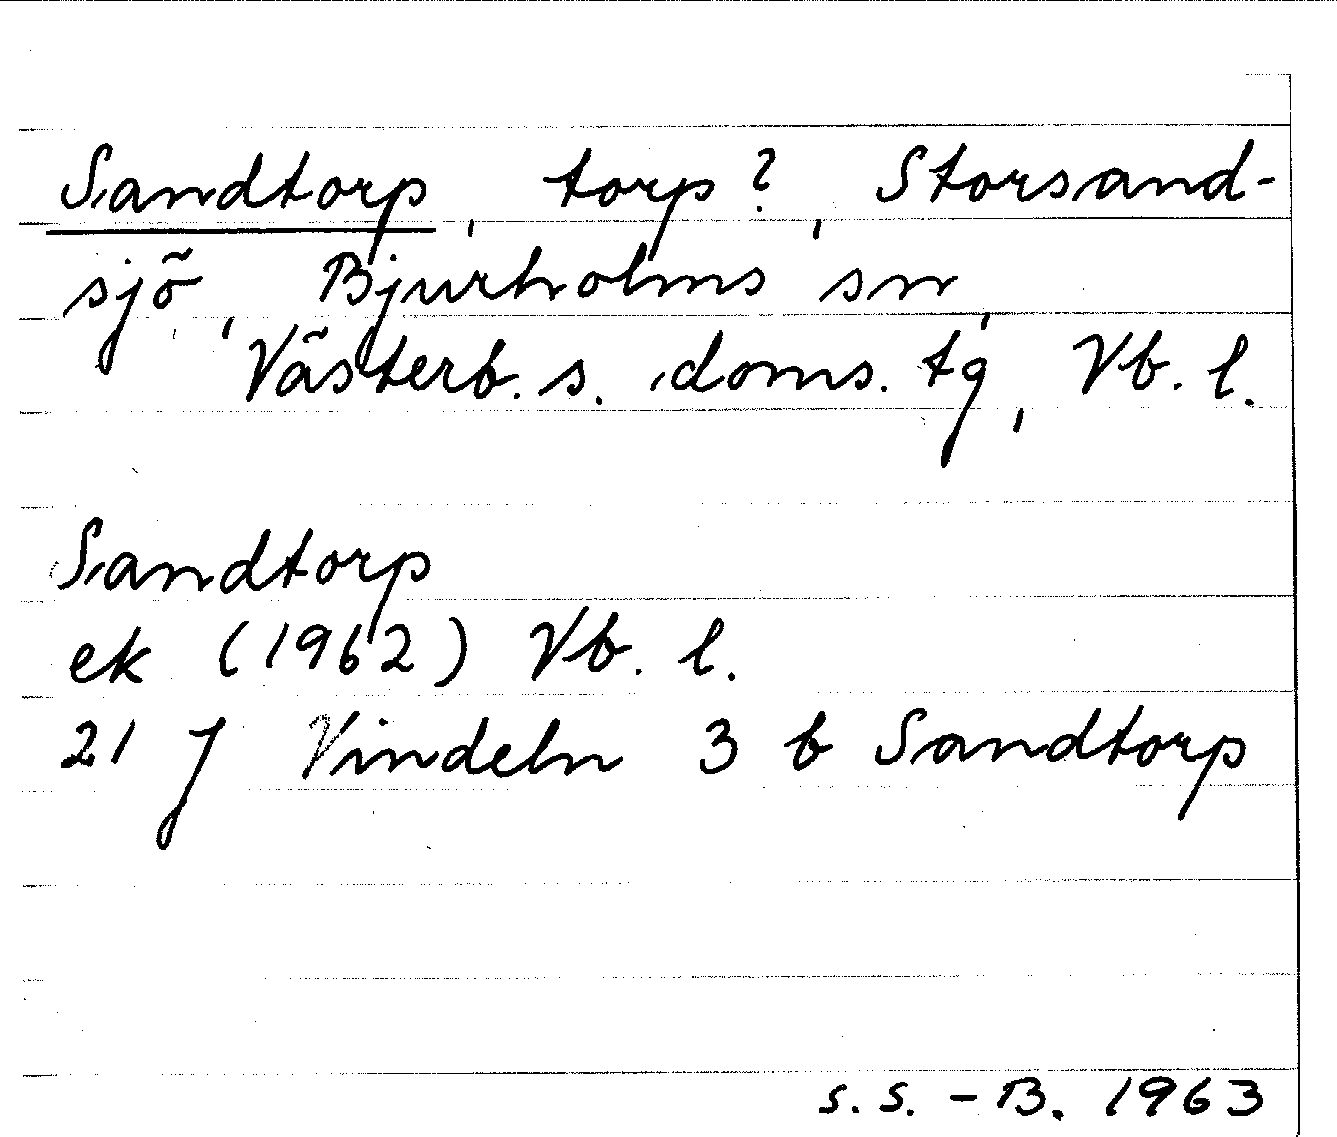 Sandtorp, torp?, Storsand-
sjö, Bjurholms sn,
Västerb. s. doms. tg, Vb. l.
Sandtorp
ek (1962) Vb. l.
21 J Vindeln 3 b Sandtorp
S.S.-B. 1963